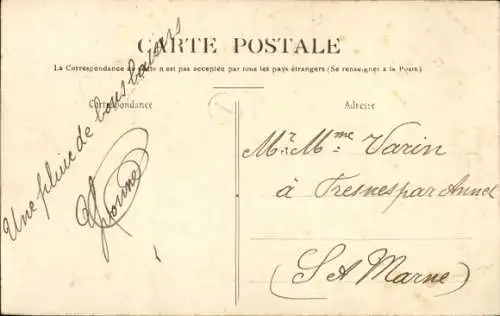 CARTE POSTALE
La Correspondance au recto n'est pas acceptée par tous les pays étrangers (Se renseigner à la Poste)
Correspondance
Adresse
Une pluie de bons baisers
Yvonne
Mr. Mme Varin
à Fresnes par Annet
(S et Marne)